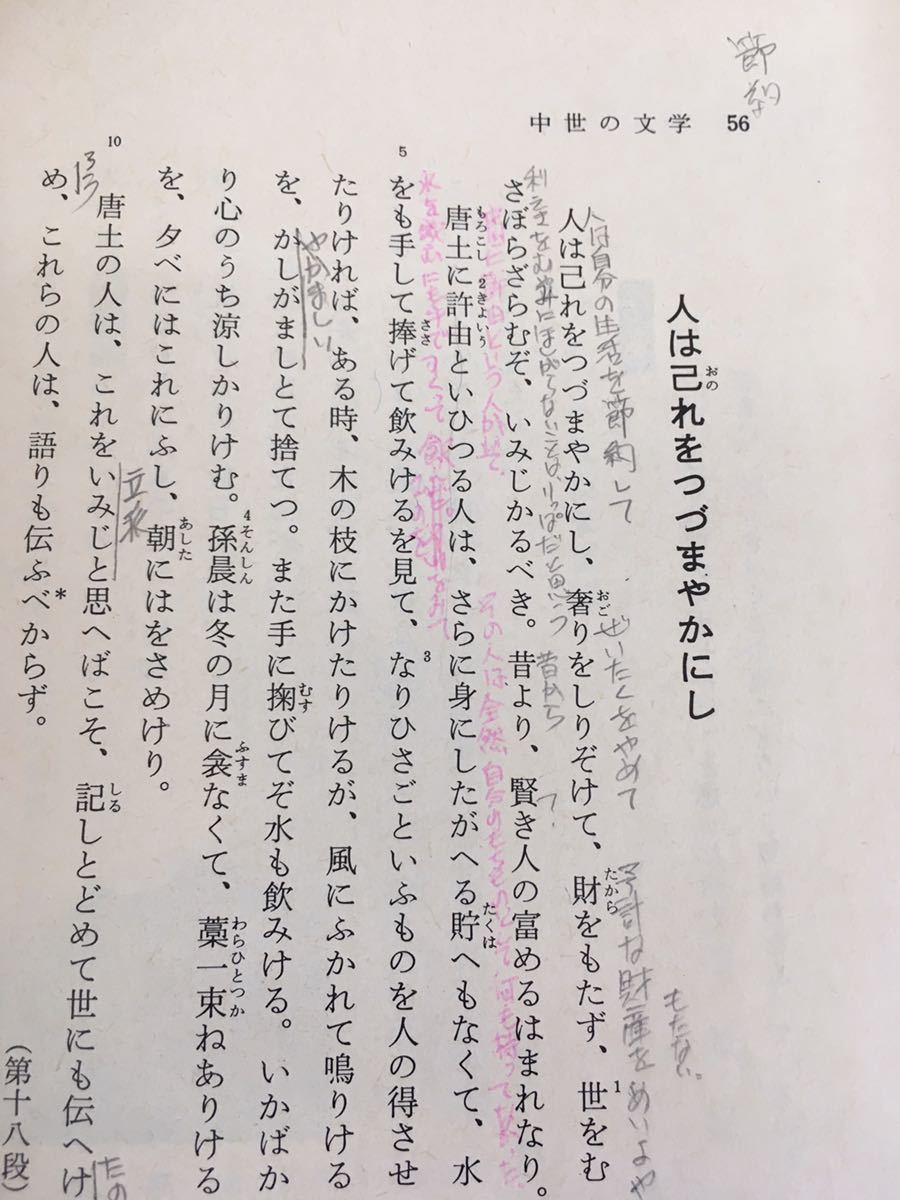 節約
中世の文学 56
人は己れをつづまやかにし
おの
もたない。
人は自分の生活を節約して ぜいたくをやめて 財産を
人は己れをつづまやかにし、奢りをしりぞけて、財をもたず、世をむ
おご たから 1
利 をむやみにほしがらないことは、りっぱだと思う 昔から
さぼらざらむぞ、いみじかるべき。昔より、賢き人の富めるはまれなり。
という人が その人は全然自分のもちもの 何も持ってなかった
唐土に許由といひつる人は、さらに身にしたがへる貯へもなくて、水
もろこし 2 きよいう たくは
5
水を にも手ですくって
をも手して捧げて飲みけるを見て、なりひさごといふものを人の得させ
ささ 3
たりければ、ある時、木の枝にかけたりけるが、風にふかれて鳴りける
やかましい
を、かしがましとて捨てつ。また手に掬びてぞ水も飲みける。いかばか
むす
り心のうち涼しかりけむ。孫晨は冬の月に衾なくて、藁一束ねありける
4 そんしん ふすま わらひとつか
を、夕べにはこれにふし、朝にはをさめけり。
あした
10
立派
唐土の人は、これをいみじと思へばこそ、記しとどめて世にも伝へけ
しる
め、これらの人は、語りも伝ふべからず。
*
(第十八段)